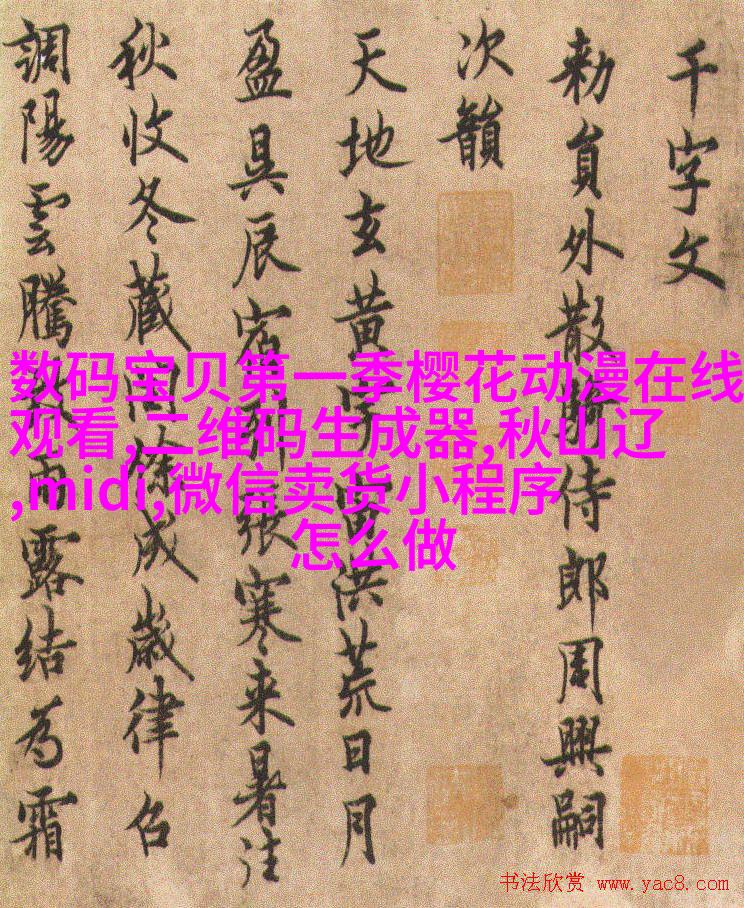 千字文
勅員外散騎侍郎周興嗣
次韻
天地玄黃宇宙洪荒日月
盈昃辰宿列張寒来暑往
秋收冬藏閏餘成歲律召
調陽雲騰致雨露結為霜
数码宝贝第一季樱花动漫在线
观看,二维码生成器,秋山辽
,midi,微信卖货小程序
怎么做
书法欣赏 www.yac8.com